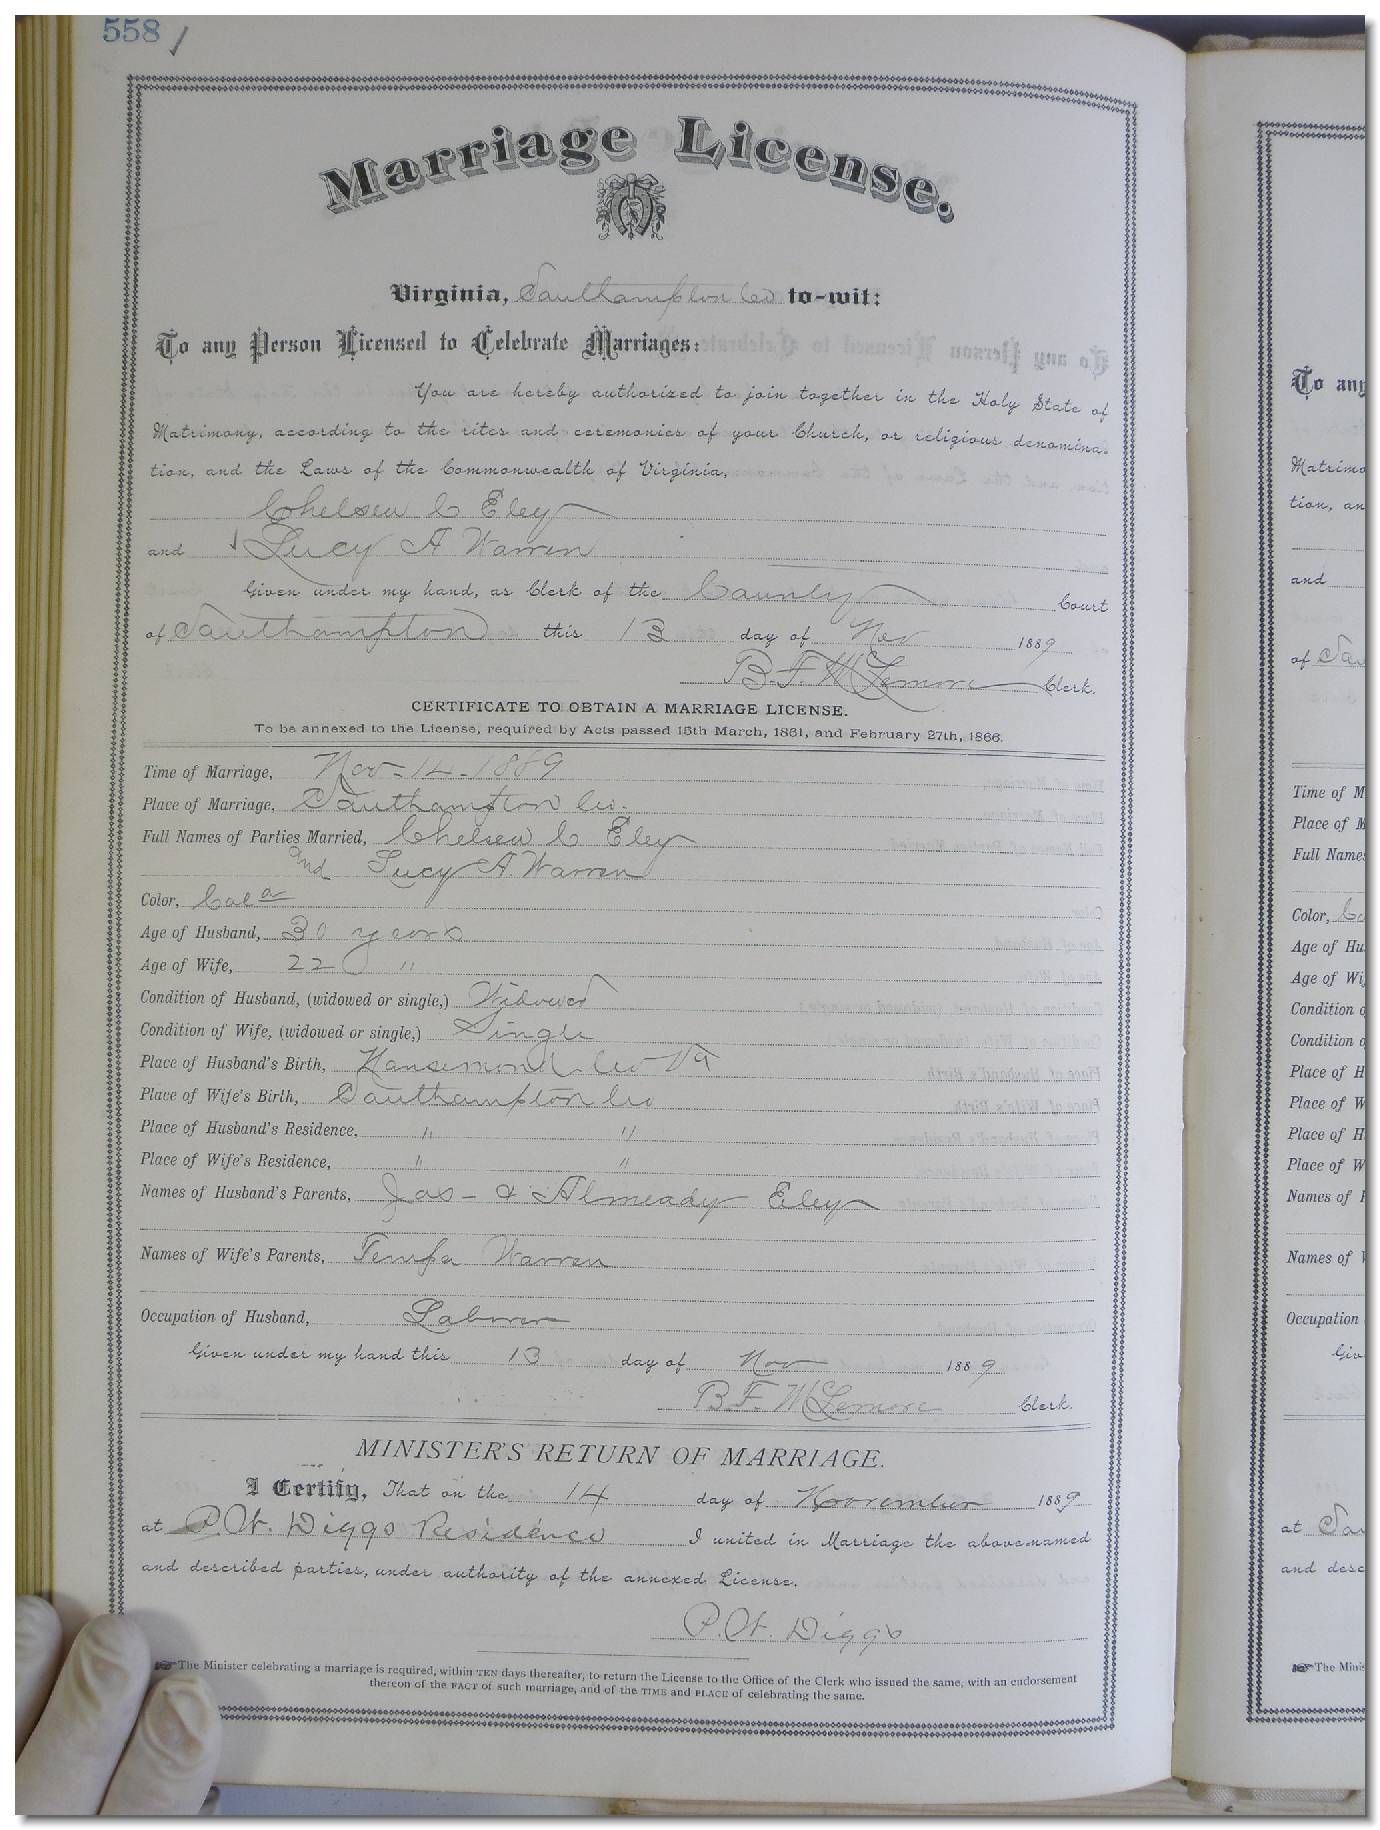 558
Marriage License.
Virginia, Southampton Co to-wit:
To any Person Licensed to Celebrate Marriages:
You are hereby authorized to join together in the Holy State of
Matrimony, according to the rites and ceremonies of your Church, or religious denomina-
tion, and the Laws of the Commonwealth of Virginia,
Chelsea C Eley
and Lucy A Warren
Given under my hand, as Clerk of the County Court
of Southampton this 13 day of Nov 1889
B. F. McLemore Clerk.
CERTIFICATE TO OBTAIN A MARRIAGE LICENSE.
To be annexed to the License, required by Acts passed 15th March, 1861, and February 27th, 1866.
Time of Marriage, Nov-14-1889
Place of Marriage, Southampton Co.
Full Names of Parties Married, Chelsea C Eley
and Lucy A. Warren
Color, Col d
Age of Husband, 30 years
Age of Wife, 22 "
Condition of Husband, (widowed or single,) Widowed
Condition of Wife, (widowed or single,) Single
Place of Husband's Birth, Nansemond Co Va
Place of Wife's Birth, Southampton Co
Place of Husband's Residence, " "
Place of Wife's Residence, " "
Names of Husband's Parents, Jas - & Almeady Eley
Names of Wife's Parents, Tempa Warren
Occupation of Husband, Laborer
Given under my hand this 13 day of Nov 1889
B. F. McLemore Clerk.
MINISTER'S RETURN OF MARRIAGE.
I Certify, That on the 14 day of November 1889
at P. W. Diggs Residence I united in Marriage the above-named
and described parties, under authority of the annexed License.
P. W. Diggs
The Minister celebrating a marriage is required, within TEN days thereafter, to return the License to the Office of the Clerk who issued the same, with an endorsement
thereon of the FACT of such marriage, and of the TIME and PLACE of celebrating the same.
To any
Matrimo
tion, an
and
of Sou
Time of M
Place of M
Full Name
Color, Co
Age of Hu
Age of Wi
Condition o
Condition o
Place of H
Place of W
Place of H
Place of W
Names of H
Names of W
Occupation
Giv
at Sou
and desc
The Minis